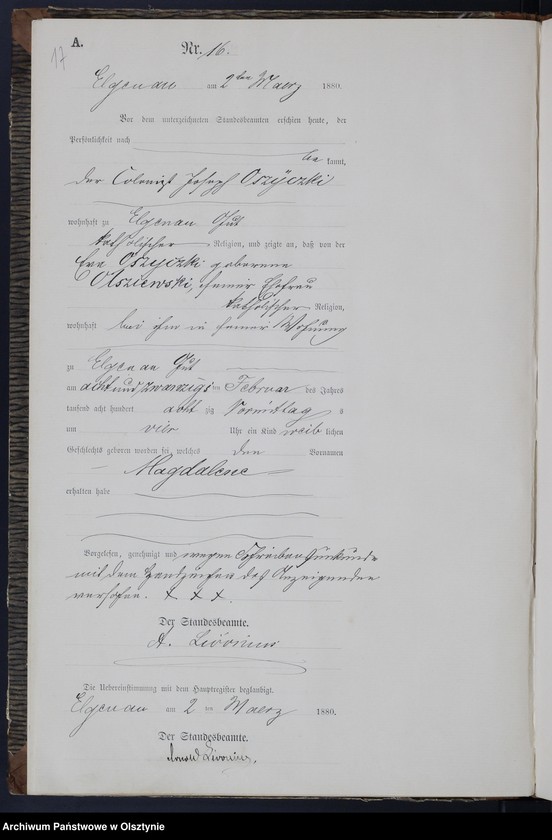 17
A.
Nr. 16.
Elgenau am 2ten Maerz 1880.
Vor dem unterzeichneten Standesbeamten erschien heute, der
Persönlichkeit nach
be kannt,
der Colonist Joseph Oszyczki
wohnhaft zu Elgenau Gut
katholischer Religion, und zeigte an, daß von der
Eva Oszyczki geborene
Olsziewski, seiner Ehefrau
katholischer Religion,
wohnhaft bei ihm in seiner Wohnung
zu Elgenau Gut
am achtundzwanzigsten Februar des Jahres
tausend acht hundert acht zig Vormittag s
um vier Uhr ein Kind weib lichen
Geschlechts geboren worden sei, welches den Vornamen
Magdalene
erhalten habe
Vorgelesen, genehmigt und wegen Schreibensunkunde
mit dem Handzeichen des Anzeigenden
versehen. + + +
Der Standesbeamte.
A. Livonius
Die Uebereinstimmung mit dem Hauptregister beglaubigt.
Elgenau am 2 ten Maerz 1880.
Der Standesbeamte.
Arnold Livonius.
Archiwum Państwowe w Olsztynie